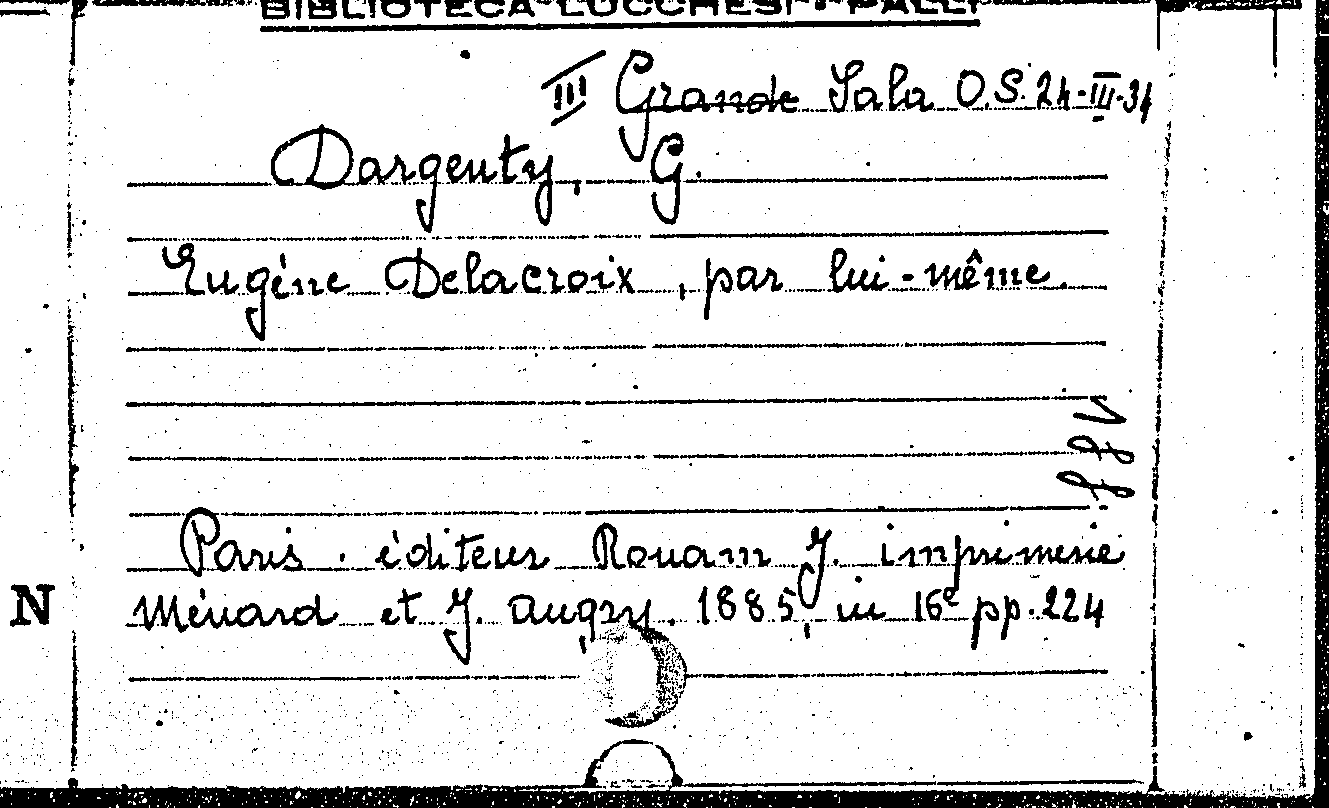 BIBLIOTECA LUCCHESI-PALLI
III Grande Sala O.S. 24-III-34
Dargenty, G.
Eugéne Delacroix, par lui-même.
Paris. éditeur Rouam J. imprimerie
N
Ménard et J. Augry. 1885, in 16º pp. 224